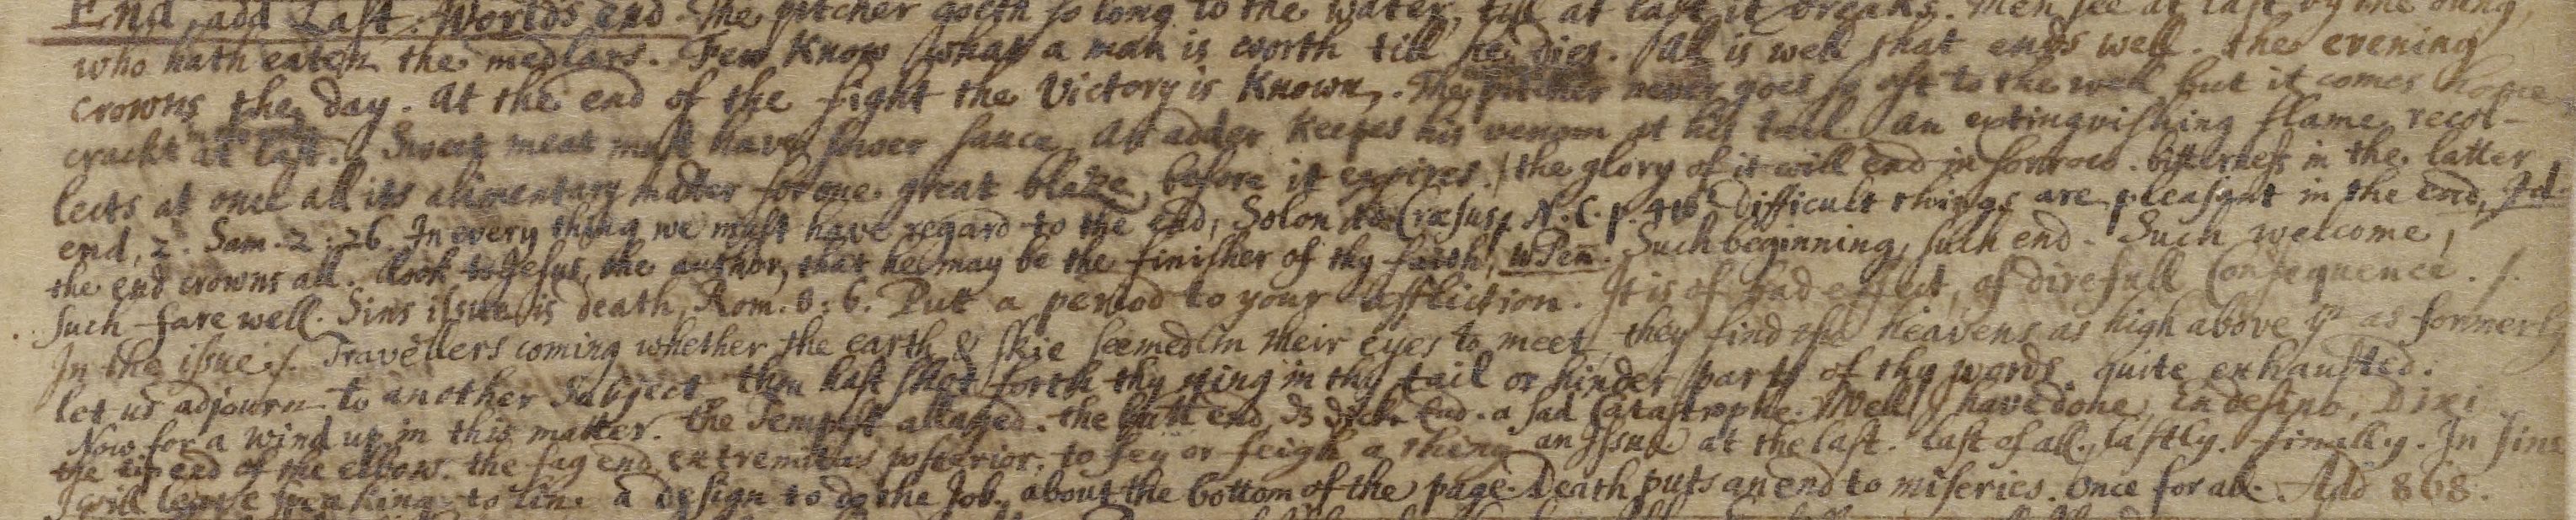 End, add Last. Worlds end. The pitcher goeth so long to the water, till at last it breaks. Men see at last by the dung,
who hath eaten the medlars. Few know what a man is worth till he dies. All is well that ends well. the evening
crowns the day. At the end of the fight the Victory is known. The pitcher never goes so oft to the well but it comes home
crackt at last. Sweet meat must have sower sauce. An adder keepes his venom at his tail. An extinguishing flame recol-
lects at once all its alimentary matter for one great blaze, before it expires. / the glory of it will end in sorrow. bitterness in the latter
end, 2. Sam. 2. 26. In every thing we must have regard to the end, Solon to Crœsus, N. C. p. Difficult things are pleasant in the end,
the end crowns all. Look to Jesus, the author, that he may be the finisher of thy faith, W Peñ. Such beginning, such end. Such welcome,
such farewell. Sins issue is death, Rom. 8: 6. Put a period to your affliction. It is of sad effect, of direfull Consequence. /.
In the issue /. Travellers coming whether the earth & skie seemed in their eyes to meet, they find the heavens as high above ym as formerly
let us adjourn to another Subject. thou hast shot forth thy sting in thy tail or hinder part of thy words. quite exhausted.
Now for a wind up in this matter. the Tempest allayed. the butt end, End. a sad Catastrophe. Well I have done, en desino, Dixi
the end of the elbow. the fag end, extremitas posterior. to fey or feigh a thing an Issue at the last. last of all, lastly. finally. In fine
I will leave speaking to a design to do the Job. about the bottom of the page. Death puts an end to miseries. Once for all. Add 868.